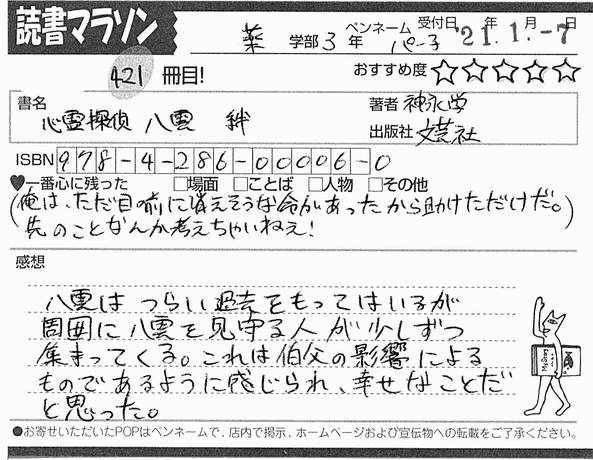 読書マラソン
薬 学部 3 年 ペンネーム パー子 受付日 '21.年 1.月 -7日
421 冊目!
おすすめ度 ☆☆☆☆☆
書名 心霊探偵 八雲 絆
著者 神永学
出版社 文芸社
ISBN 978-4-286-00006-0
♥一番心に残った □場面 □ことば □人物 □その他
(俺は、ただ目の前に消えそうな命があったから助けただけだ。)
先のことなんか考えちゃいねぇ!
感想
八雲は つらい過去をもってはいるが
周囲に八雲を見守る人が少しずつ
集まってくる。これは伯父の影響による
ものであるように感じられ、幸せなことだ
と思った。
●お寄せいただいたPOPはペンネームで、店内で掲示、ホームページおよび宣伝物への転載をご了承ください。